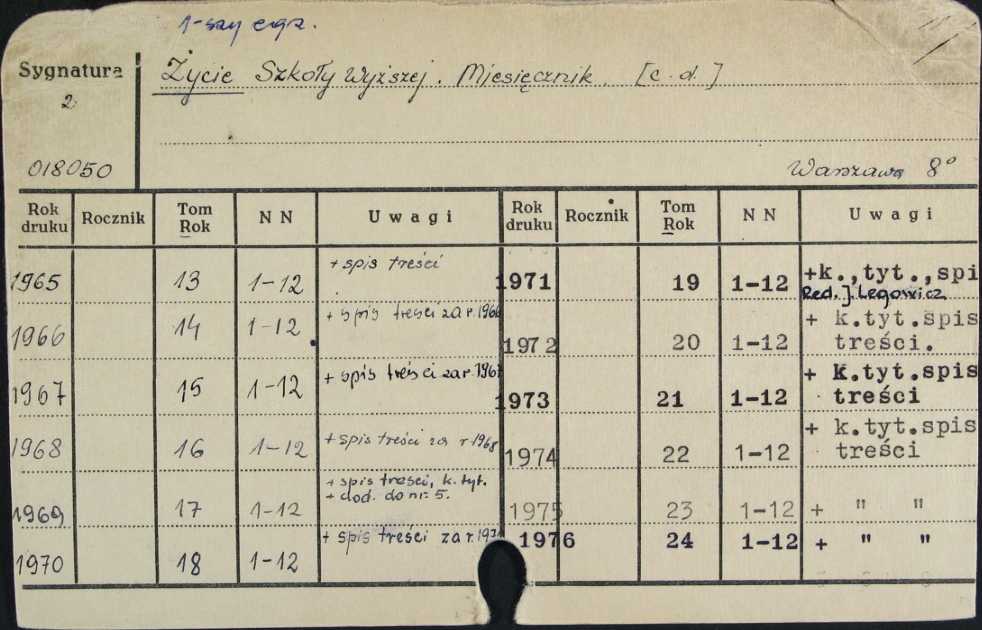 1-szy egz.
Sygnatura
2
018050
Życie Szkoły Wyższej. Miesięcznik. [c.d.]
Warszawa 8°
Rok druku Rocznik Tom Rok NN Uwagi Rok druku Rocznik Tom Rok NN Uwagi
1965 13 1-12 + spis treści
1966 14 1-12 + spis treści za r. 1966
1967 15 1-12 + spis treści za r. 1967
1968 16 1-12 + spis treści za r 1968
1969 17 1-12 + spis treści, k. tyt. + dod. do nr. 5.
1970 18 1-12 + spis treści za r. 1970
1971 19 1-12 +k.,tyt.,spi
Red. J. Legowicz
1972 20 1-12 + k.tyt.spis treści.
1973 21 1-12 + k.tyt.spis treści
1974 22 1-12 + k.tyt.spis treści
1975 23 1-12 + " "
1976 24 1-12 + " "